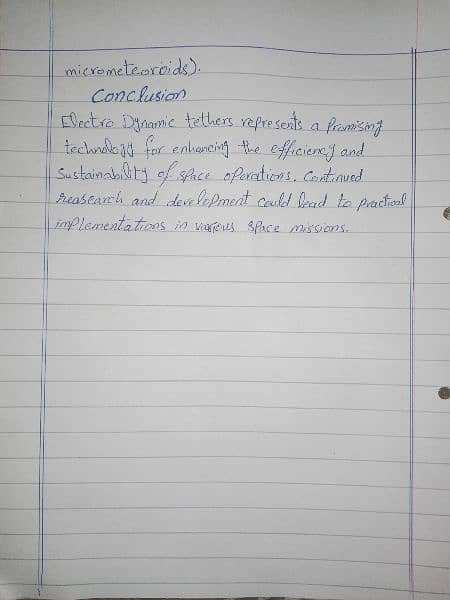 micrometeoroids).
Conclusion
Electro Dynamic tethers represents a Promising
technology for enhancing the efficiency and
Sustainability of space operations. Continued
reasearch and development could lead to practical
implementations in various space missions.